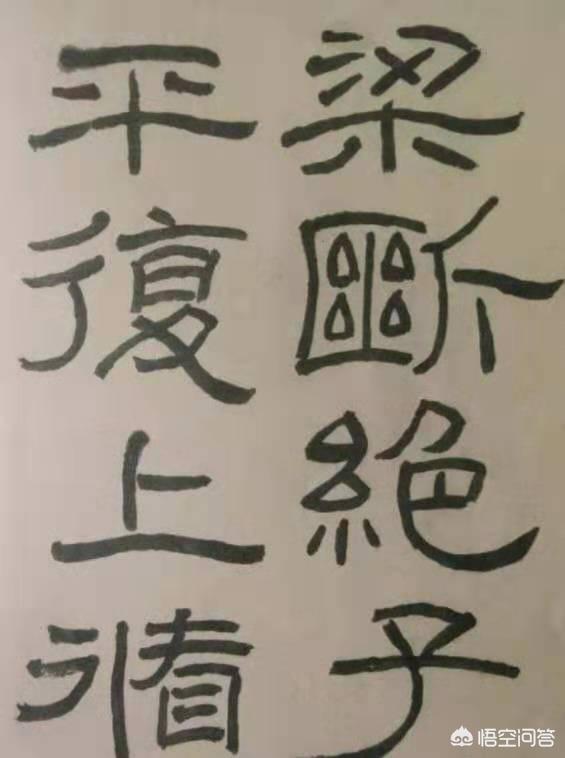 梁斷絕子
平復上循
悟空问答